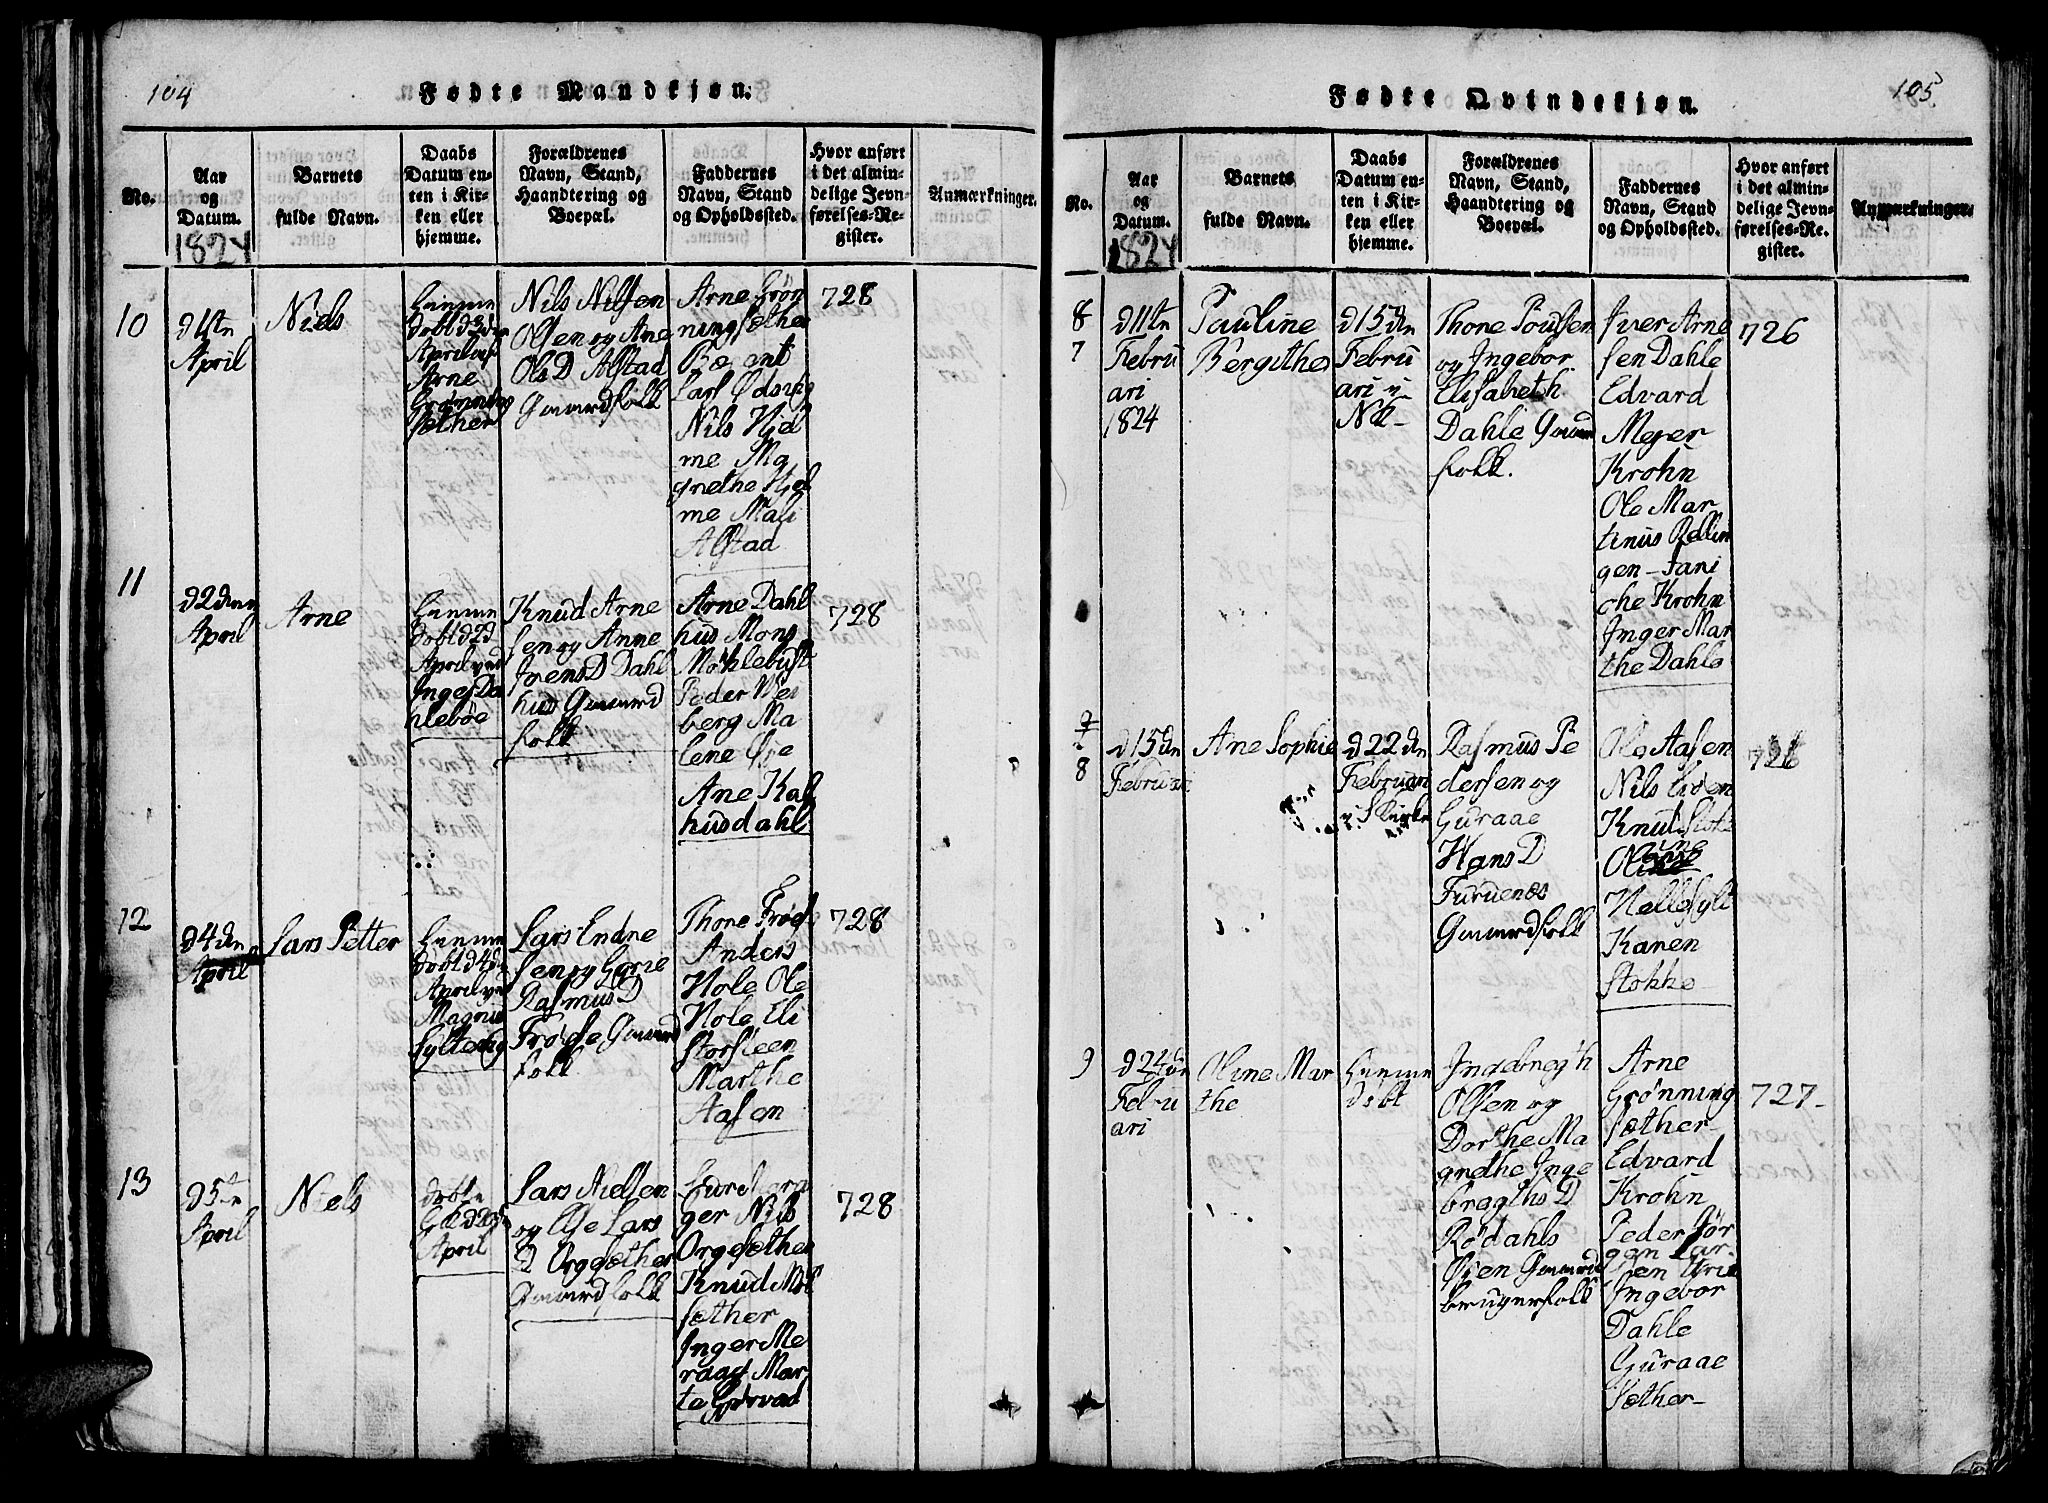 104
Fødte Mandkjøn.
No.
Aar
og
Datum.
1824
Barnets
fulde Navn.
Daabs
Datum en-
ten i Kir-
ken eller
hjemme.
Forældrenes
Navn, Stand,
Haandtering og
Boepæl.
Faddernes
Navn, Stand
og Opholdssted.
Hvor anført
i det almin-
delige Jevn-
førelses-Re-
gister.
Anmærkninger.
10
d 1ste
April
Niels
Hiemme
døbt d 2den
April af
Arne
Grønnings
sæther
Nils Nilsen
Olsen og Ane
Ols D Alstad
Gaardfolk
Arne Grøn
ningsæther
Lars Ødsvig
Nils Hjel
me Ma
grethe Hjel
me Mali
Alstad
728
11
d 2den
April
Arne
Hiemme
døbt d 2d
April ved
Inges Da
hlebøe
Knud Arne
sen og Anne
Joens D Dahl
hus Gaard
folk
Arne Dahl
hus Mons
Møhlebust
Peder Ves
berg Ma
lene Øie
Ane Kal
husdahl
728
12
d 4de
April
Lars Petter
Hiemme
døbt d 4de
April ved
Magnus
Sylte
Lars Endre
sen og Gorie
Rasmus D
Frøise Gaard
folk
Thore Frøise
Anders
Hole Ole
Hole Eli
Storsteen
Marthe
Aasen
728
13
d 5te
April
Niels
døbt
April
Lars Nielsen
og Else Lars
D Orgesæther
Gaardfolk
ger Nils
Orgesæther
Knud Mel
sæther
Inger Me
raag Mar
te
728
105
Fødte Qvindekjøn.
No.
Aar
og
Datum.
1824
Barnets
fulde Navn.
Daabs
Datum en-
ten i Kir-
ken eller
hjemme.
Forældrenes
Navn, Stand,
Haandtering og
Boepæl.
Faddernes
Navn, Stand
og Opholdssted.
Hvor anført
i det almin-
delige Jevn-
førelses-Re-
gister.
Anmærkninger.
8
7
d 11te
Febru
ari
1824
Pauline
Bergithe
d 15de
Febru
ari i
Thore Poulsen
og Ingebor
Elisabeth
Dahle Gaard
folk.
Iver Arne
sen Dahle
Edvard
Mejer
Krohn
Ole Mar
tinus Rellin
gen - Jani
che Krohn
Inger Mar
the Dahle
726
9
8
d 15de
Februari
Ane Sophie
d 22de
Februari
i S Kirke
Rasmus Pe
dersen og
Guraae
Hans D
Furuenes
Gaardfolk
Ole Aasen
Nils Liden
Knud Stokke
Oline
Hellesylt
Karen
Stokke
726
9
d 24de
Febru
ari
Oline Mar
the
Hiemme
døbt
Ingebregth
Olsen og
Dorthe Ma
grethe Inge
bregths D
Rødahls
Øien Gaard
brugerfolk
Arne
Grønning
sæther
Edvard
Krohn
Peder Jør
gen Lar
sen
Ingebor
Dahle
Guraae
Sæther
727